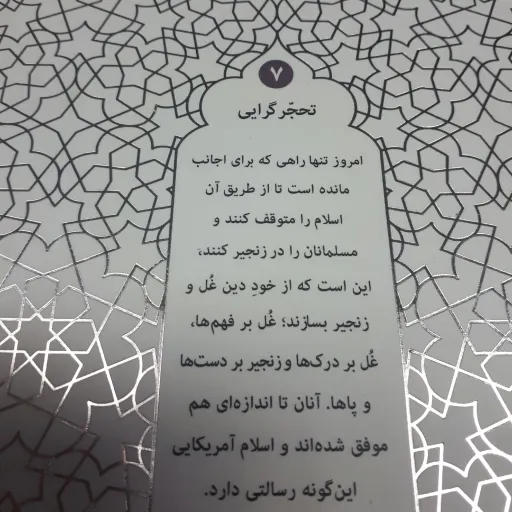 ۷
تحجّرگرایی
امروز تنها راهی که برای اجانب
مانده است تا از طریق آن
اسلام را متوقف کنند و
مسلمانان را در زنجیر کنند،
این است که از خودِ دین غُل و
زنجیر بسازند؛ غُل بر فهم‌ها،
غُل بر درک‌ها و زنجیر بر دست‌ها
و پاها. آنان تا اندازه‌ای هم
موفق شده‌اند و اسلام آمریکایی
این‌گونه رسالتی دارد.